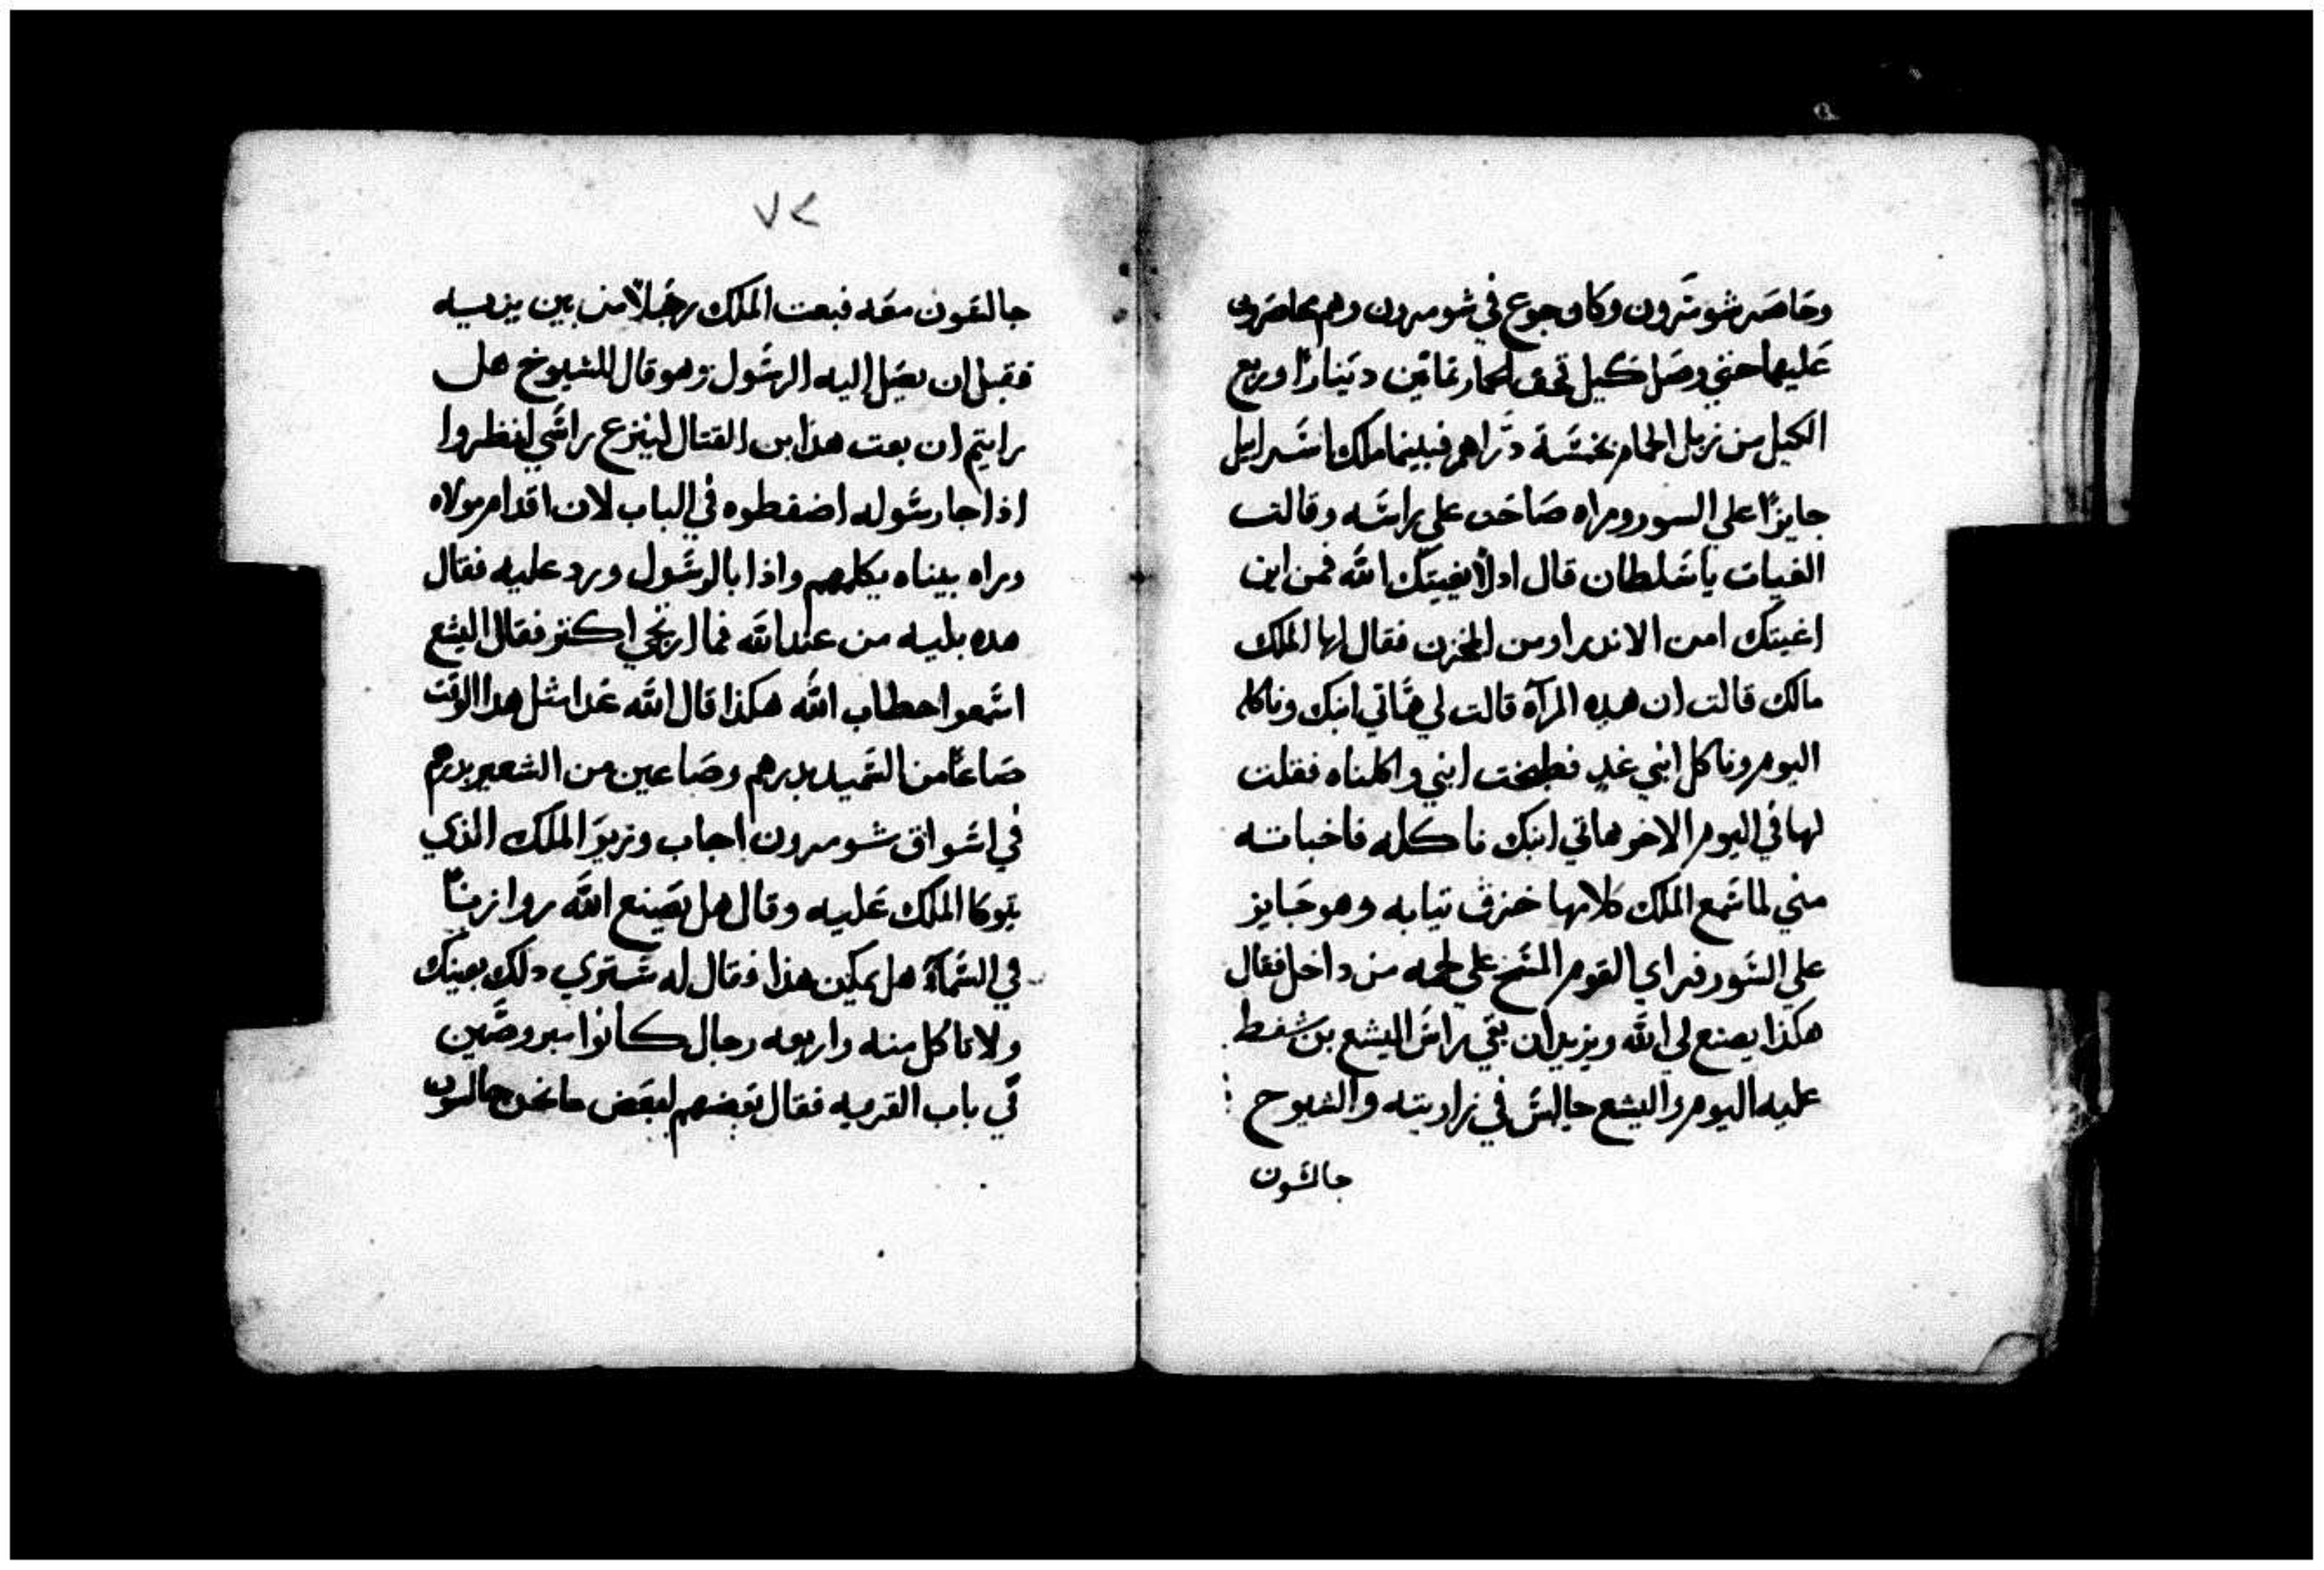 وحاصر شومرون وكان جوع في شومرون وهم محاصرون
عليها حتي وصل كيل قحف الحمار بمّانين دينارًا وربع
الكيل من زبل الحمام بخمسة دراهم فبينما ملك اسرايل
جايزًا علي السور ومراه صاحت علي راسه وقالت
الغيات يا سلطان قال اولًا يغيتك الله فمن اين
اغيتك امن الاندر او من المخزن فقال لها الملك
مالك قالت ان هده المرآة قالت لي هاتي ابنك وناكله
اليوم وناكل ابني غدٍ فطبخت ابني واكلناه فقلت
لها في اليوم الاخر هاتي ابنك ناكله فاخباته
مني لما سمع الملك كلامها خزق تيابه وهو جايز
علي السور فراي القوم المسح علي لحمه من داخل فقال
هكذا يصنع لي الله ويزيد ان بقي راس اليشع بن شفط
عليه اليوم واليشع جالس في زاويته والشيوح
جالسون
٧٢
جالسون معه فبعت الملك رجلًا من بين يديه
فقبل ان يصل اليه الرسول وهو قال للشيوخ هل
رايتم ان بعت هذا بن القتال لينزع راسي انظروا
اذا جا رسوله اضغطوه في الباب لان اقدام مولاه
وراه بيناه يكلمهم واذا بالرسول ورد عليه فقال
هده بليه من عند الله فما ارتجي اكتر فقال اليشع
اسمعوا خطاب الله هكذا قال الله غدا مثل هدا الوقت
صاعًا من السميد بدرهم وصاعين من الشعير بدرهم
في اسواق شومرون اجاب وزير الملك الذي
يتوكا الملك عليه وقال هل يصنع الله روازنًا
في السمآء هل يمكين هذا فقال له ستري دلك بعينك
ولا تاكل منه واربعه رجال كانوا مبروصين
في باب القريه فقال بعضهم لبعض ما نحن جالسون